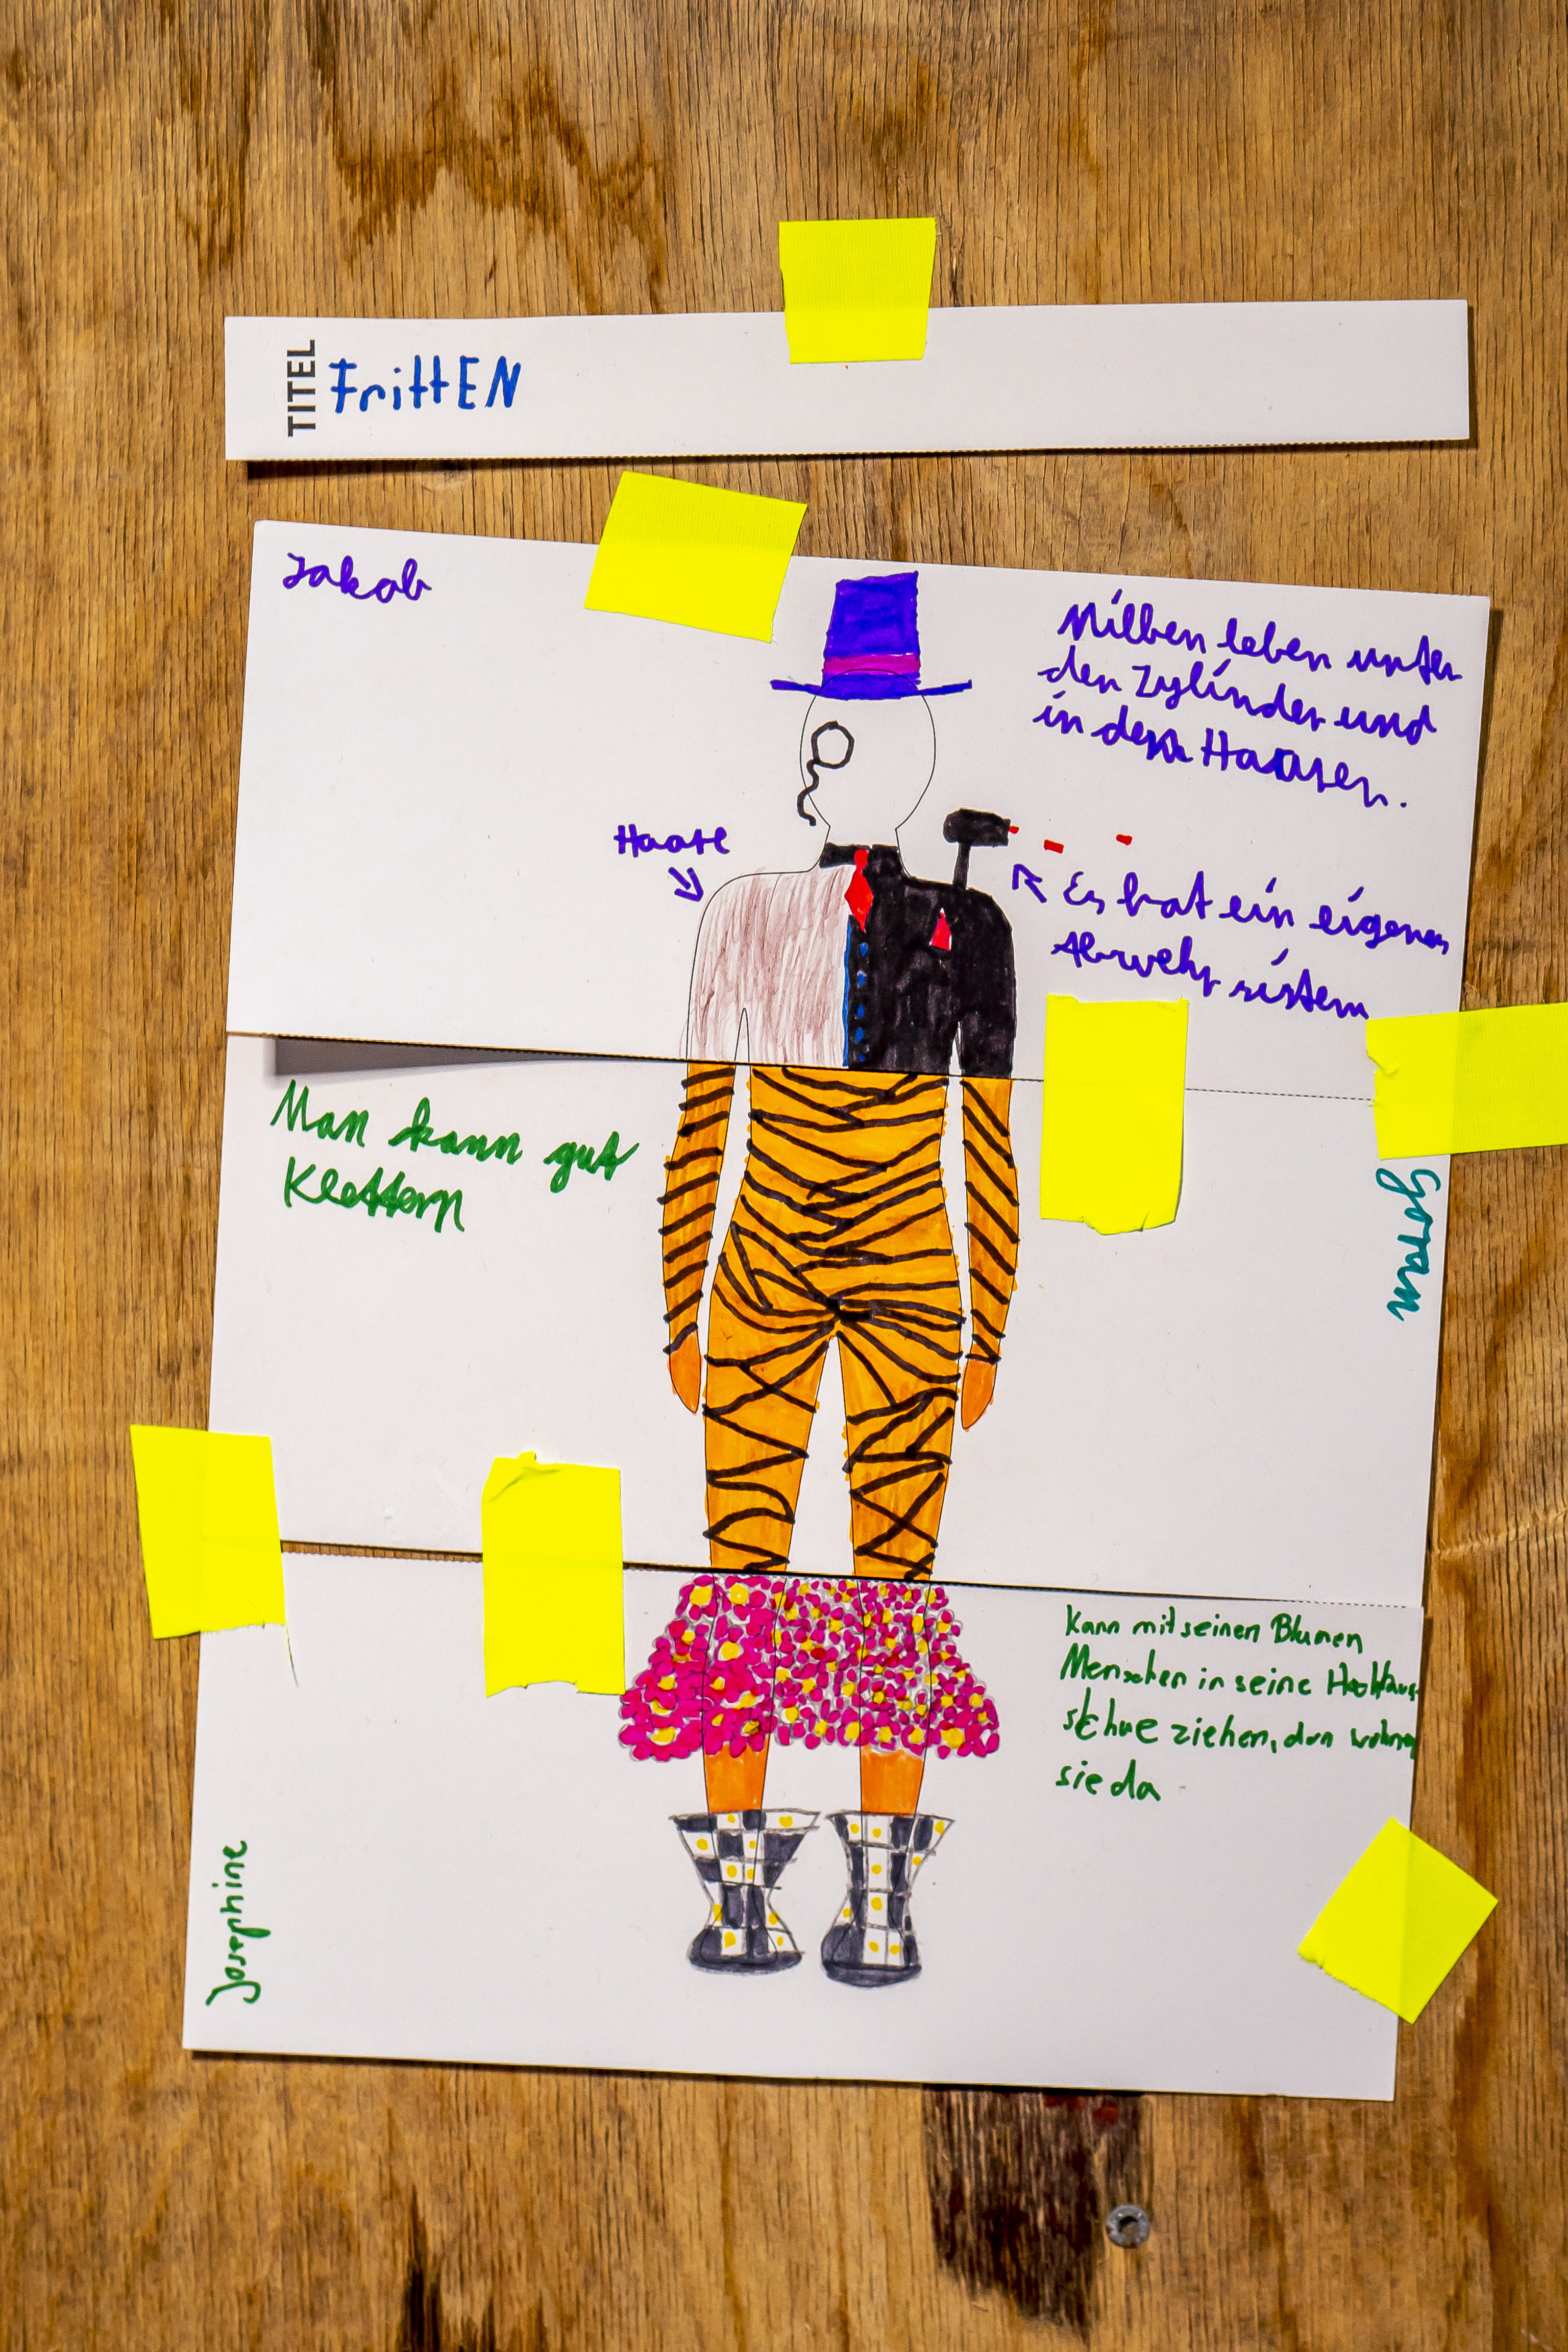 TITEL
FrittEN
Jakob
Milben leben unter
den Zylinder und
in den Haaren.
Haare
Es hat ein eigenes
Abwehr sistem
Man kann gut
Klettern
Goram
Kann mit seinen Blumen
Menschen in seine
schue ziehen, dan wohnen
sie da
Josephine